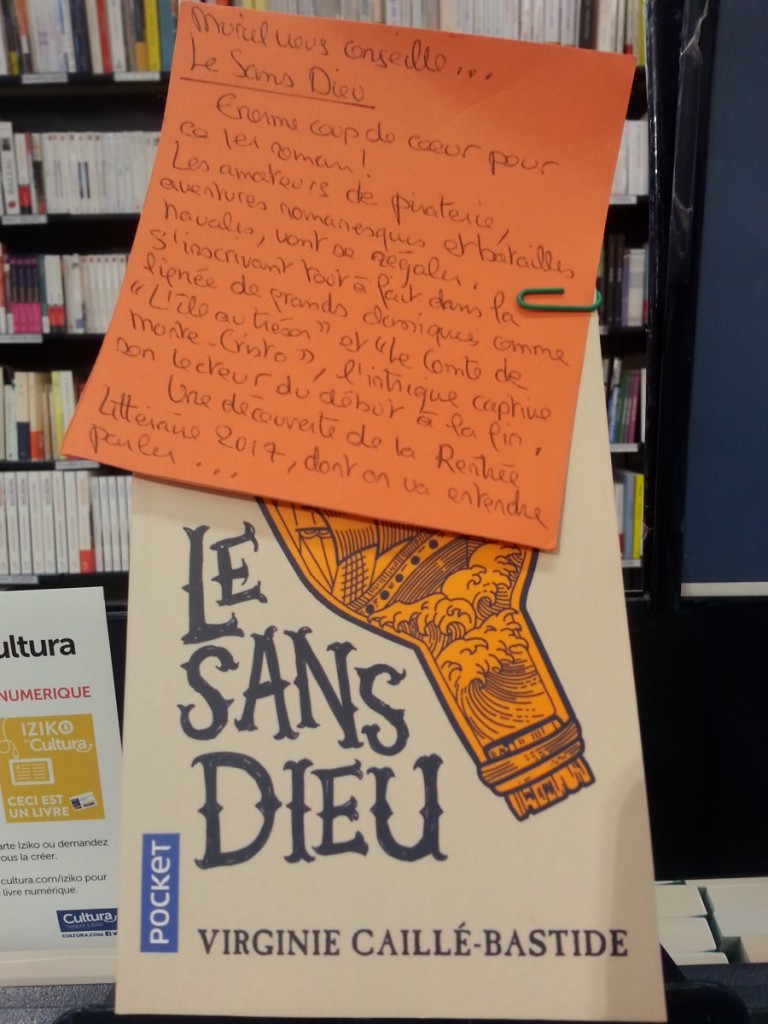 Muriel vous conseille...
Le Sans Dieu
Enorme coup de coeur pour
ce 1er roman !
Les amateurs de piraterie,
aventures romanesques et batailles
navales, vont se régaler.
S'inscrivant tout à fait dans la
lignée de grands classiques comme
"L'île au trésor" et "Le Comte de
Monte-Cristo", l'intrigue captive
son lecteur du début à la fin.
Une découverte de la Rentrée
Littéraire 2017, dont on va entendre
parler...
LE
SANS
DIEU
POCKET
VIRGINIE CAILLÉ-BASTIDE
ultura
NUMERIQUE
IZIKO
by Cultura
CECI EST
UN LIVRE
arte Iziko ou demandez
vous la créer.
cultura.com/iziko pour
livre numérique.
Cultura
CULTURA.COM